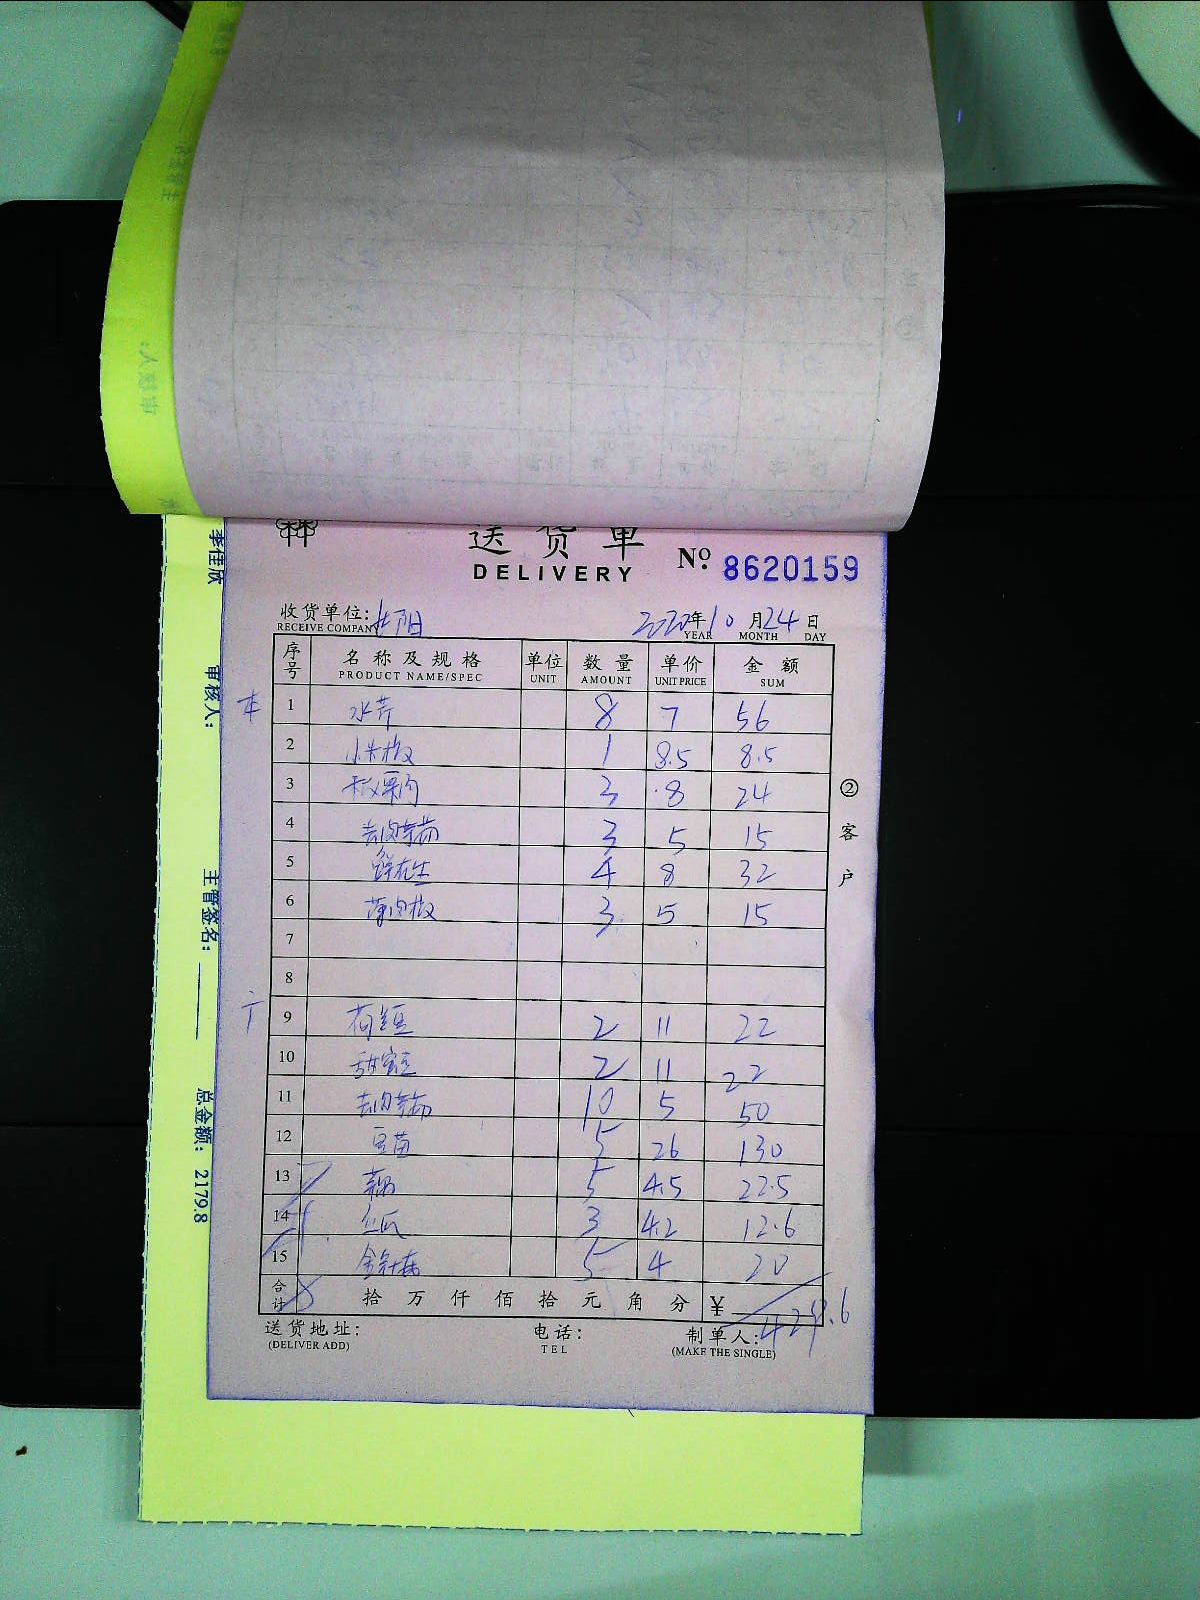 送货单
DELIVERY
№ 8620159
收货单位:
RECEIVE COMPANY
2020年10月24日
YEAR MONTH DAY
序号 名称及规格 单位 数量 单价 金额
PRODUCT NAME/SPEC UNIT AMOUNT UNIT PRICE SUM
1 水芹 8 7 56
2 小米椒 1 8.5 8.5
3 板栗肉 3 8 24
4 3 5 15
5 鲜花生 4 8 32
6 薄肉椒 3 5 15
7
8
9 荷兰豆 2 11 22
10 甜蜜豆 2 11 22
11 10 5 50
12 豆苗 5 26 130
13 5 4.5 22.5
14 丝瓜 3 4.2 12.6
15 金针菇 5 4 20
合计 拾 万 仟 佰 拾 元 角 分 ¥ 429.6
送货地址: 电话: 制单人:
(DELIVER ADD) TEL (MAKE THE SINGLE)
②客户
李佳欣
审核人:
主管签名:
总金额: 2179.8